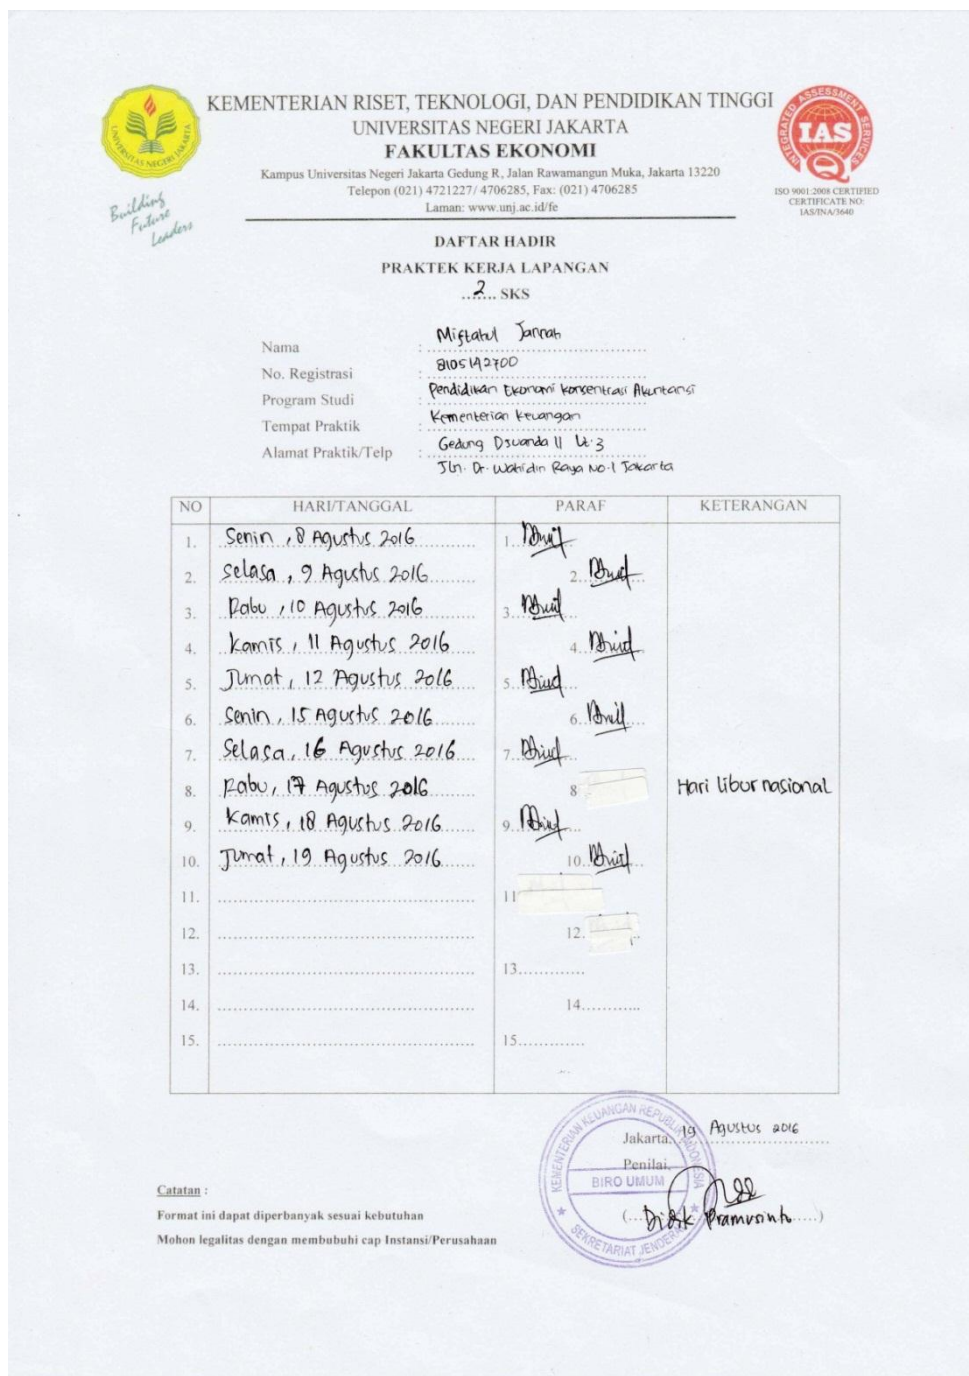 KEMENTERIAN RISET, TEKNOLOGI, DAN PENDIDIKAN TINGGI
UNIVERSITAS NEGERI JAKARTA
FAKULTAS EKONOMI
Kampus Universitas Negeri Jakarta Gedung R, Jalan Rawamangun Muka, Jakarta 13220
Telepon (021) 4721227/ 4706285, Fax: (021) 4706285
Laman: www.unj.ac.id/fe
UNIVERSITAS NEGERI JAKARTA
Building
Future
Leaders
INTEGRATED ASSESSMENT SERVICES
IAS
ISO 9001:2008 CERTIFIED
CERTIFICATE NO:
IAS/INA/3640
DAFTAR HADIR
PRAKTEK KERJA LAPANGAN
..2.... SKS
Nama : Miftahul Jannah
No. Registrasi : 8105142700
Program Studi : Pendidikan Ekonomi Konsentrasi Akuntansi
Tempat Praktik : Kementerian Keuangan
Alamat Praktik/Telp : Gedung Djuanda II Lt.3
Jln. Dr. Wahidin Raya No.1 Jakarta
NO HARI/TANGGAL PARAF KETERANGAN
1. Senin, 8 Agustus 2016 1.
2. Selasa, 9 Agustus 2016 2.
3. Rabu, 10 Agustus 2016 3.
4. Kamis, 11 Agustus 2016 4.
5. Jumat, 12 Agustus 2016 5.
6. Senin, 15 Agustus 2016 6.
7. Selasa, 16 Agustus 2016 7.
8. Rabu, 17 Agustus 2016 8 Hari libur nasional
9. Kamis, 18 Agustus 2016 9.
10. Jumat, 19 Agustus 2016 10.
11. 11
12. 12.
13. 13.
14. 14.
15. 15.
Jakarta, 19 Agustus 2016
Penilai,
KEMENTERIAN KEUANGAN REPUBLIK INDONESIA
BIRO UMUM
SEKRETARIAT JENDERAL
(Didik Pramusinto)
Catatan :
Format ini dapat diperbanyak sesuai kebutuhan
Mohon legalitas dengan membubuhi cap Instansi/Perusahaan